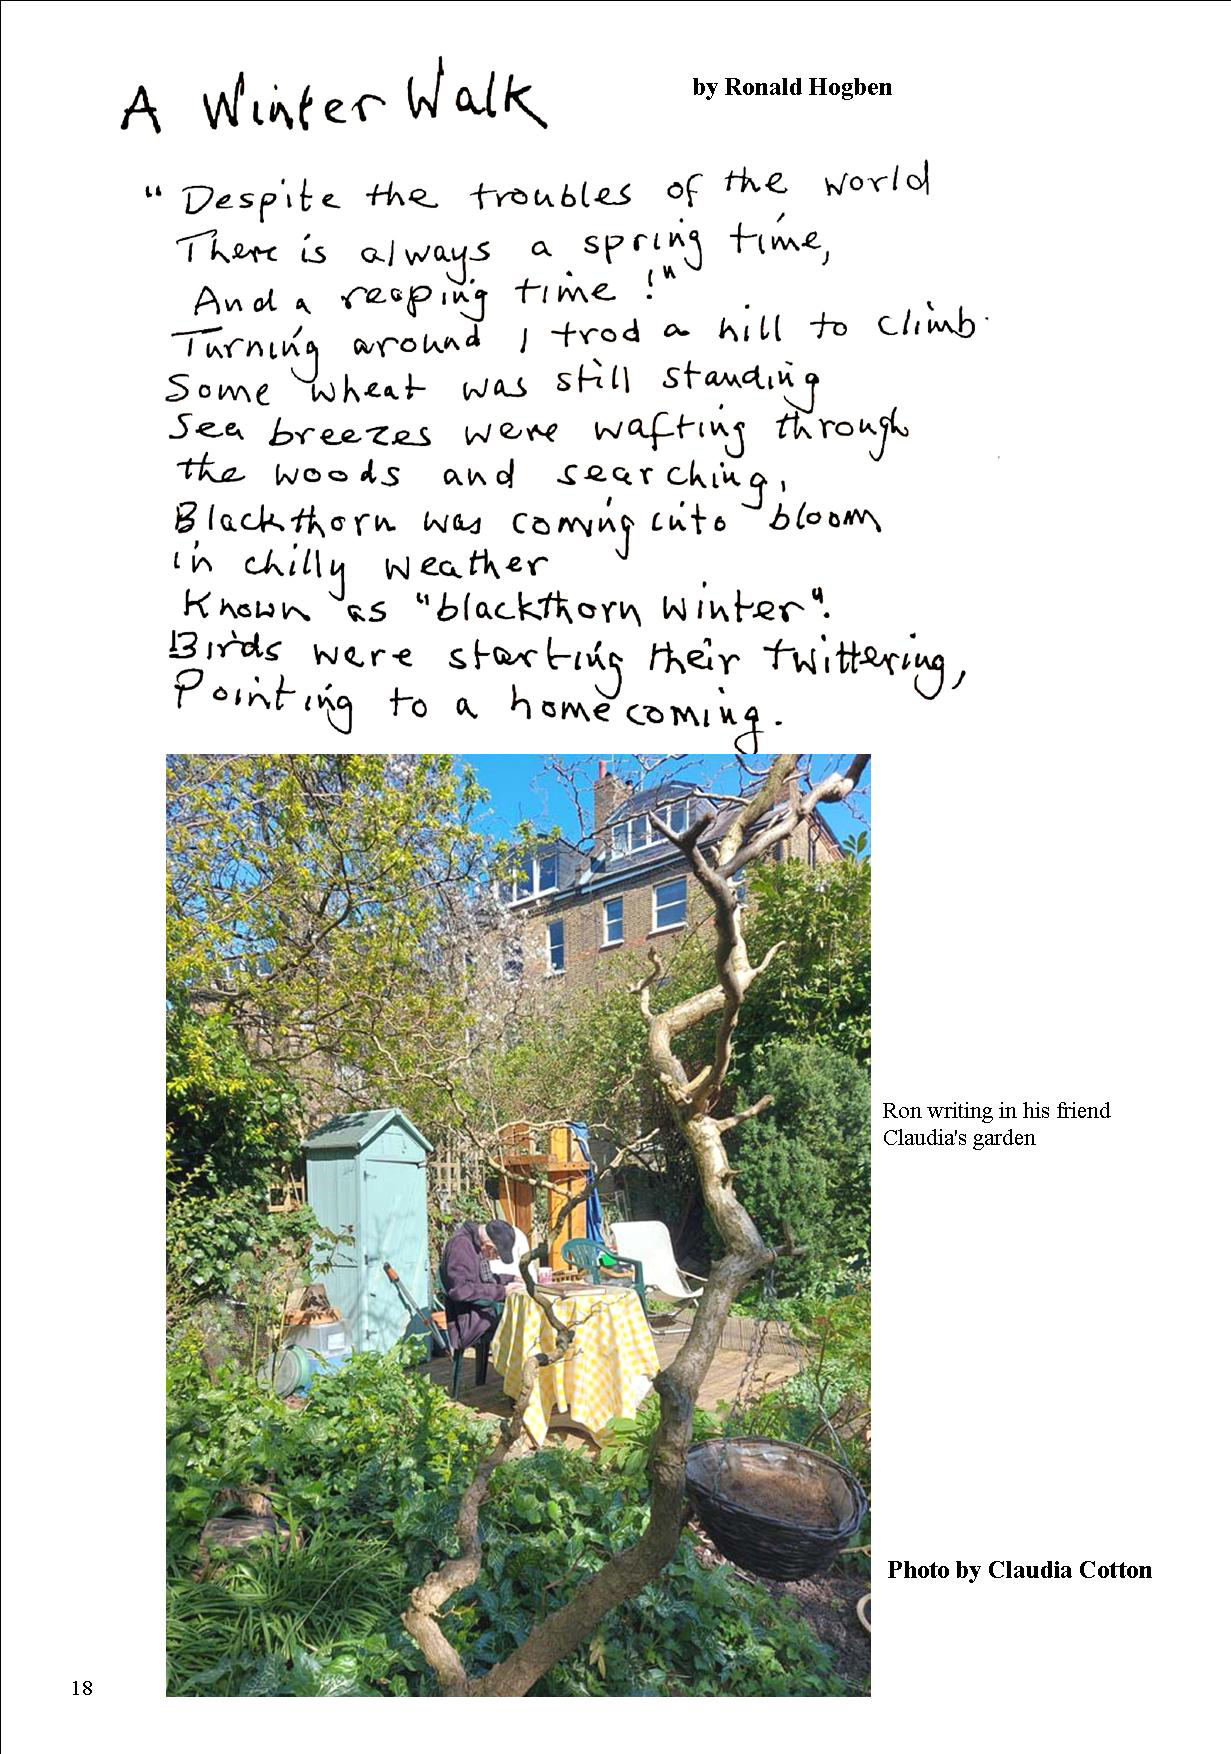 A Winter Walk
by Ronald Hogben
"Despite the troubles of the world
There is always a spring time,
And a reaping time!"
Turning around I trod a hill to climb.
Some wheat was still standing
Sea breezes were wafting through
the woods and searching,
Blackthorn was coming into bloom
in chilly weather
Known as "blackthorn winter".
Birds were starting their twittering,
Pointing to a homecoming.
Ron writing in his friend
Claudia's garden
Photo by Claudia Cotton
18